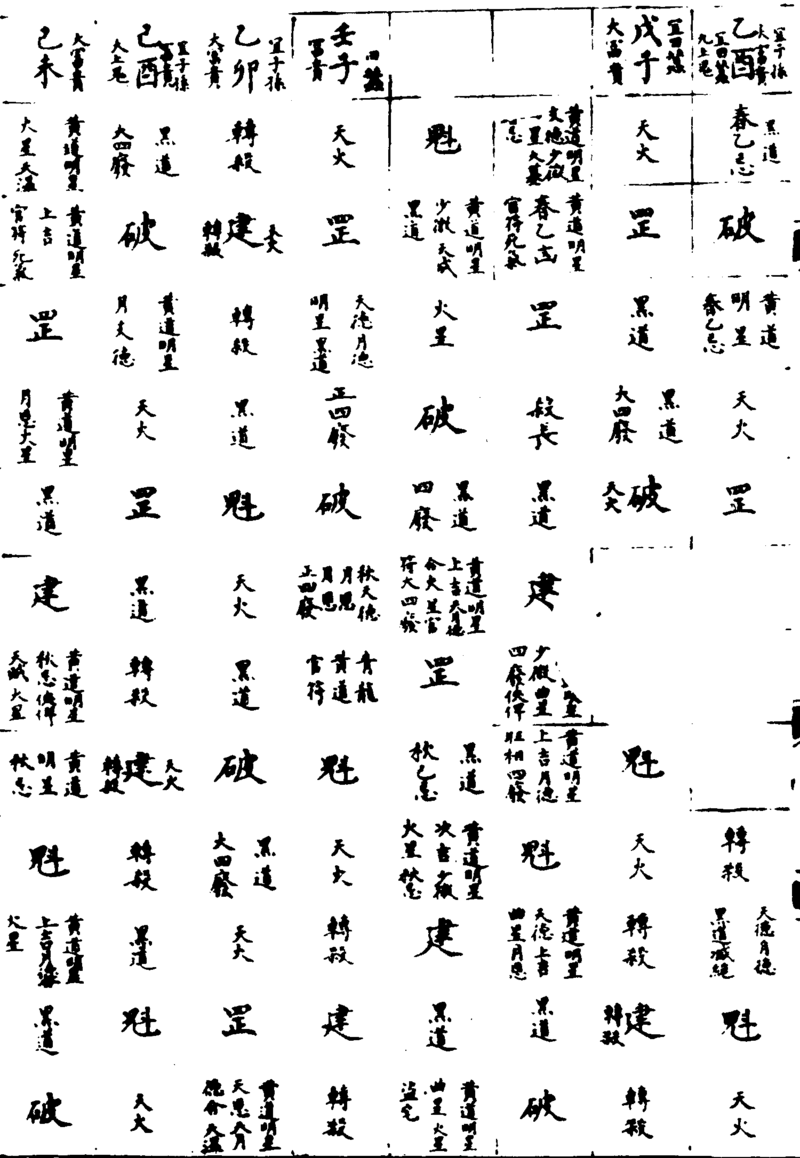 宜子孫
大富貴
乙酉
宜田蚕
九上冕
黑道
春乙忌
破
黃道
明星
春乙忌
天火
罡
轉殺
天德月德
黑道滅絕
魁
天火
宜田蚕
戊子
大富貴
天火
罡
黑道
黑道
大四廢
破
天火
魁
天火
轉殺
建
轉殺
轉殺
黃道明星
黃道明星
罡
殺長
黑道
建
少微曲星
黃道明星
上吉月德
旺相四廢
魁
黃道明星
天德上吉
曲星月恩
黑道
破
魁
黃道明星
少微天成
黑道
火星
破
黑道
四廢
黃道明星
上吉天月德
合火星官
符大四廢
罡
黑道
秋乙忌
黃道明星
次吉少微
火星秋忌
建
黑道
黃道明星
曲星火星
田蚕
壬子
富貴
天火
罡
天德月德
明星黑道
正四廢
破
秋天德
月恩
正四廢
青龍
黃道
官符
魁
天火
轉殺
建
轉殺
宜子孫
乙卯
大富貴
轉殺
建
天火
轉殺
轉殺
黑道
魁
天火
黑道
破
黑道
大四廢
天火
罡
黃道明星
天恩天月
德合天瘟
宜子孫
富貴
己酉
大上冕
黑道
大四廢
破
黃道明星
月支德
天火
罡
黑道
轉殺
天火
建
轉殺
轉殺
黑道
魁
天火
大富貴
己未
黃道明星
火星天瘟
黃道明星
上吉
官符死氣
罡
黃道明星
月恩火星
黑道
建
黃道明星
天賊火星
黃道
明星
秋忌
魁
黃道明星
火星
黑道
破